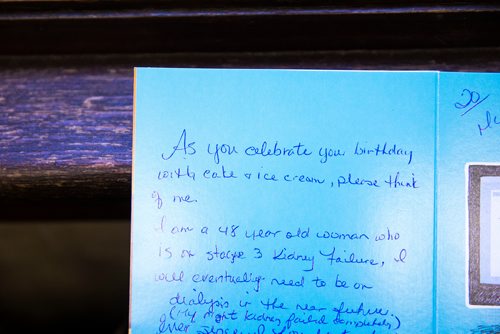 As you celebrate your birthday
with cake & ice cream, please think
of me.
I am a 48 year old woman who
is on stage 3 Kidney failure, I
will eventually need to be on
dialysis in the near future.
(My right kidney failed completely)
20